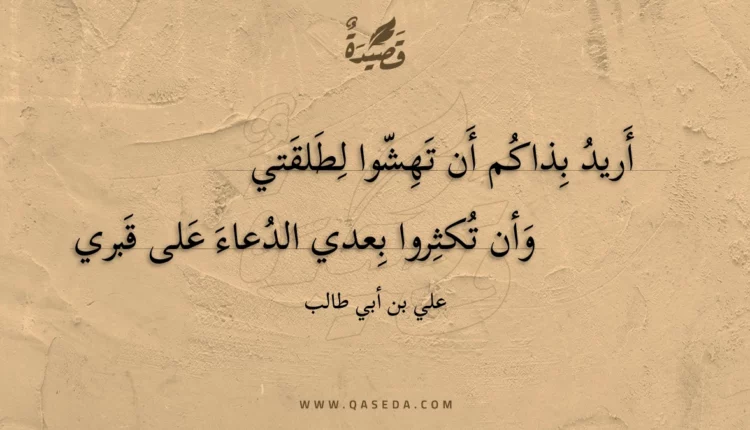 قَصِيدَةٌ
أَريدُ بِذاكُم أَن تَهِشّوا لِطَلقَتي
وَأن تُكثِروا بِعدي الدُعاءَ عَلى قَبري
علي بن أبي طالب
WWW.QASEDA.COM